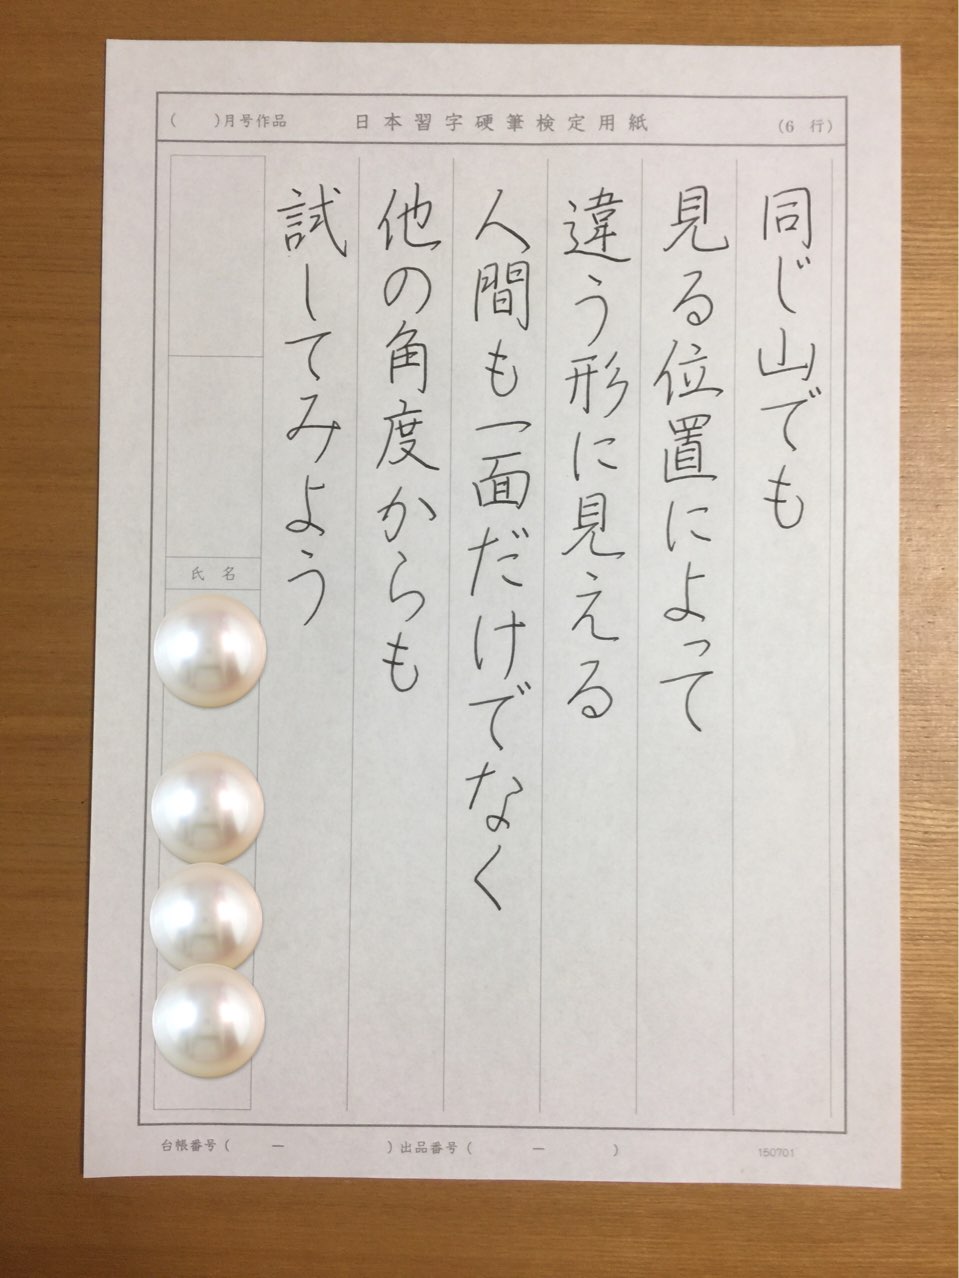 （　　）月号作品　日本習字硬筆検定用紙　（6　行）
同じ山でも
見る位置によって
違う形に見える
人間も一面だけでなく
他の角度からも
試してみよう
氏　名
台帳番号（　　－　　）出品番号（　　－　　）　150701